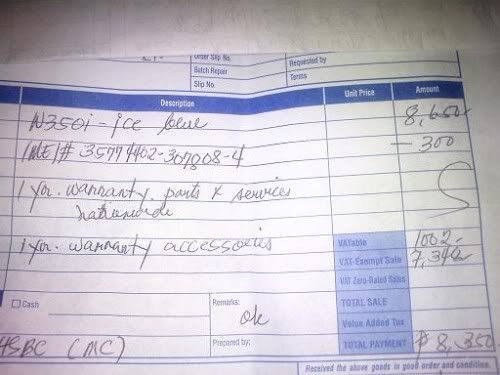 Order Slip No.
Requested by
Batch Repair
Terms
Slip No.
Description Unit Price Amount
N350i - ice blue 8,650
IMEI # - 300
1 yr. warranty parts & services
nationwide
1 yr. warranty accessories
VATable 1002.
VAT-Exempt Sale
VAT Zero-Rated Sales
Cash Remarks: TOTAL SALE
ok Value Added Tax
HSBC (MC) Prepared by: TOTAL PAYMENT ₱ 8,350
Received the above goods in good order and condition.